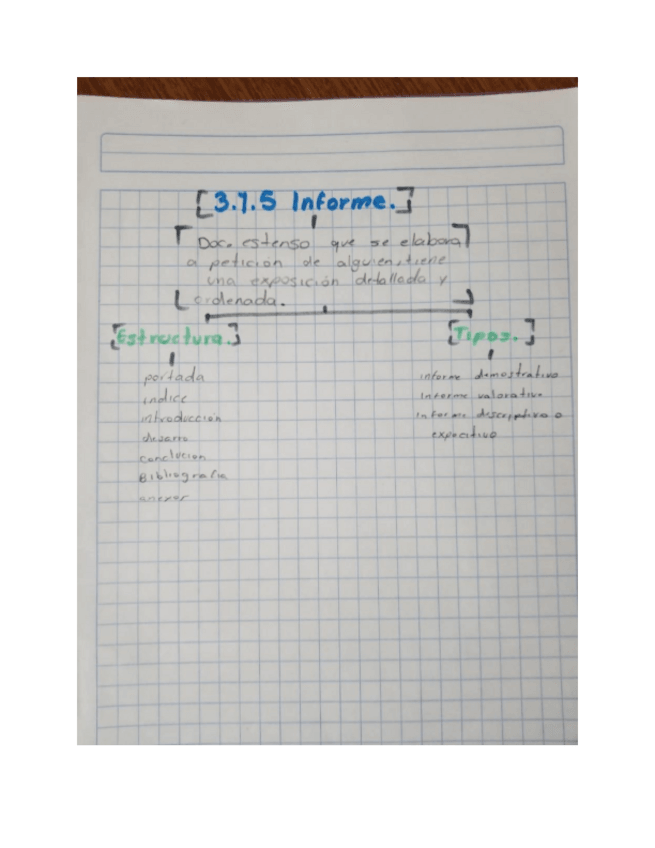 [3.1.5 Informe.]
Doc. estenso que se elabora
a petición de alguien, tiene
una exposición detallada y
ordenada.
[Estructura.]
portada
indice
introducción
desarro
conclucion
Bibliografia
anexos
[Tipos.]
informe demostrativo
Informe valorativo
Informe descripptivo o
expocitivo